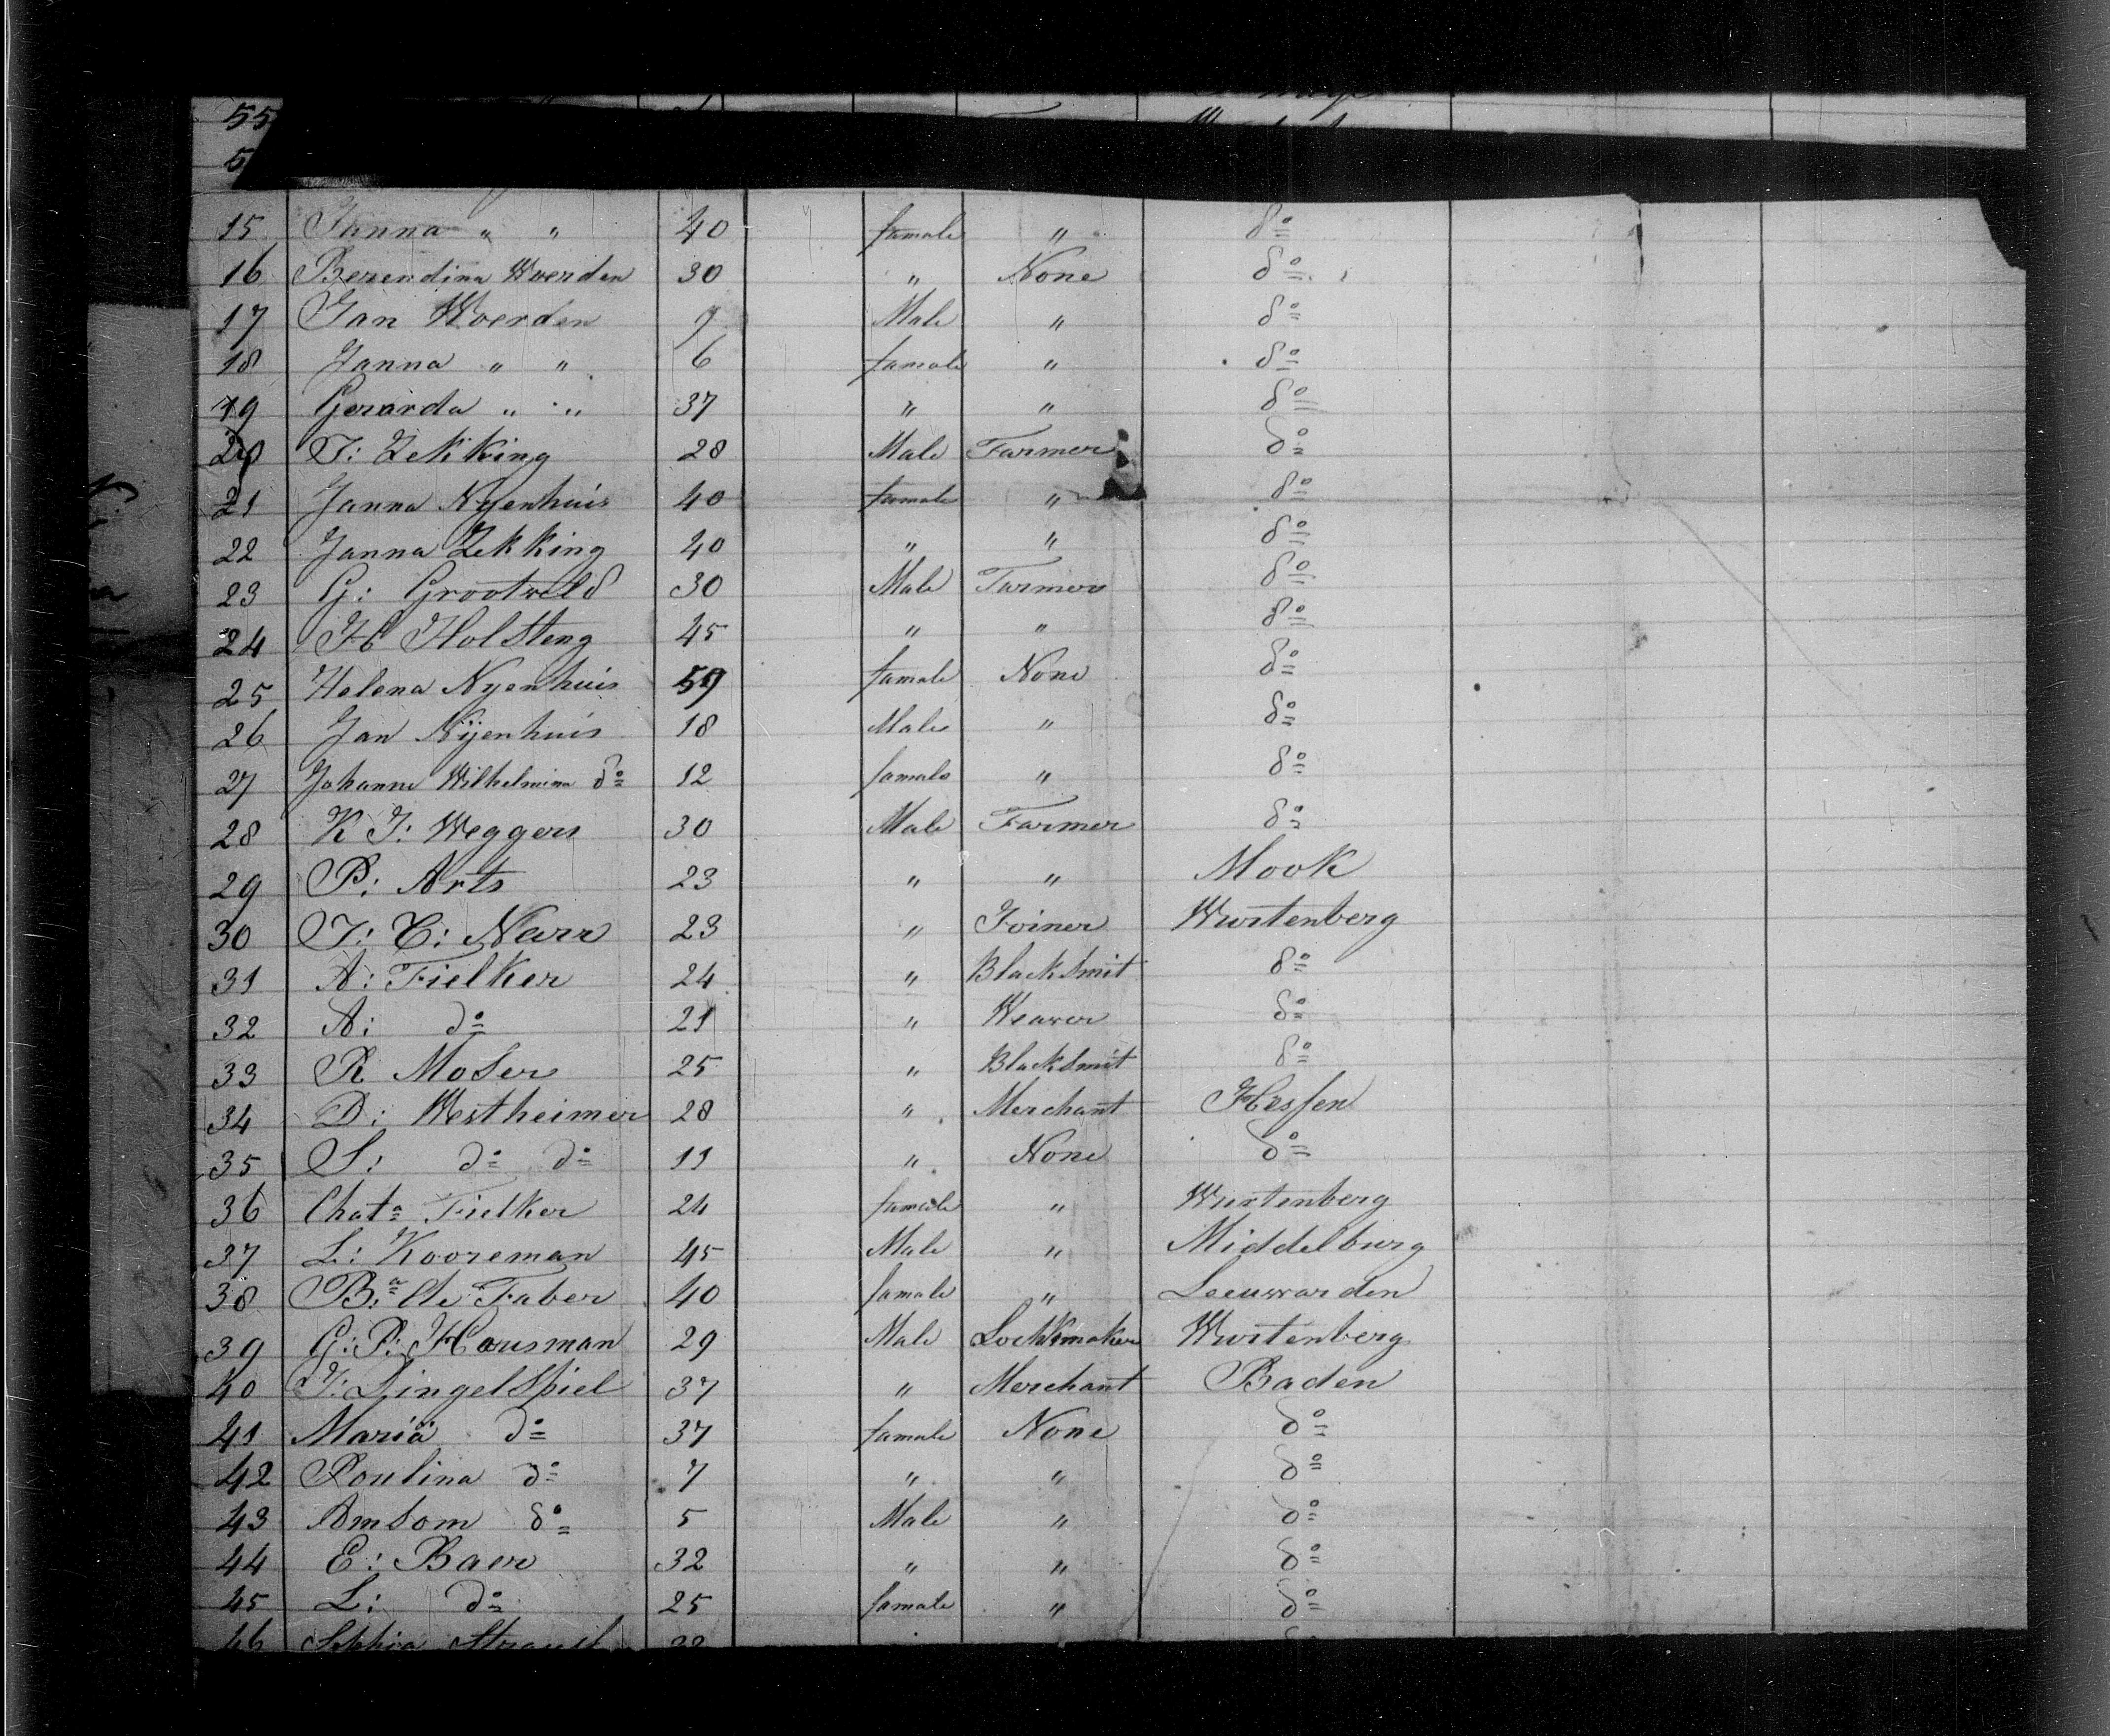 55
15 Janna " " 40 famale " do
16 Berendina Woerden 30 " None do
17 Jan Woerden 9 Male " do
18 Janna " " 6 famale " do
19 Gerarda " " 37 " " do
20 J: Zekking 28 Male Farmer do
21 Janna Nyenhuis 40 famale " do
22 Janna Zekking 40 " " do
23 G: Grootveld 30 Male Farmer do
24 H Holsteng 45 " " do
25 Helena Nyenhuis 59 famale None do
26 Jan Nÿenhuis 18 Male " do
27 Johanna Wilhelmina do 12 famale " do
28 K J: Weggers 30 Male Farmer do
29 P: Arts 23 " " Mook
30 J: C: Narr 23 " Joiner Wurtenberg
31 A: Fielker 24 " Blacksmit do
32 A: do 21 " Weaver do
33 R Moser 25 " Blacksmit do
34 D: Westheimer 28 " Merchant Hessen
35 S: do do 11 " None do
36 Chata Fielker 24 famale " Wurtenberg
37 L: Kooreman 45 Male " Middelburg
38 B:a de Faber 40 famale " Leeuwarden
39 G: P: Hausman 29 Male Lockmaker Wurtenberg
40 J: Dingelspiel 37 " Merchant Baden
41 Maria do 37 famale None do
42 Poulina do 7 " " do
43 Amsom do 5 Male " do
44 E: Baer 32 " " do
45 L: do 25 famale " do
46 Sophia Strauss 22